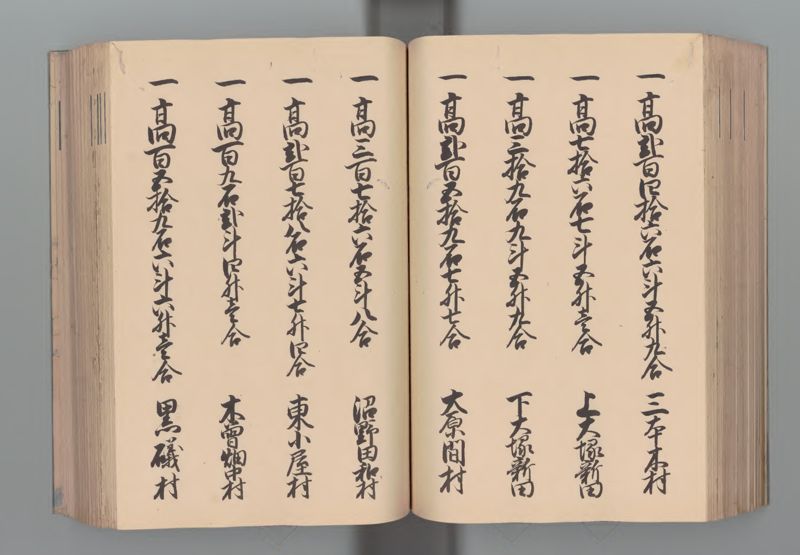 一 高弐百四拾六石六斗五升九合 三本木村
一 高七拾六石七斗五升壱合 上大塚新田
一 高三拾九石九斗五升九合 下大塚新田
一 高弐百五拾九石七升七合 大原間村
一 高三百七拾六石五斗八合 沼野田和村
一 高弐百七拾八石六斗七升四合 東小屋村
一 高百九石弐斗四升壱合 木曽畑中村
一 高百五拾九石六斗六升壱合 黒磯村